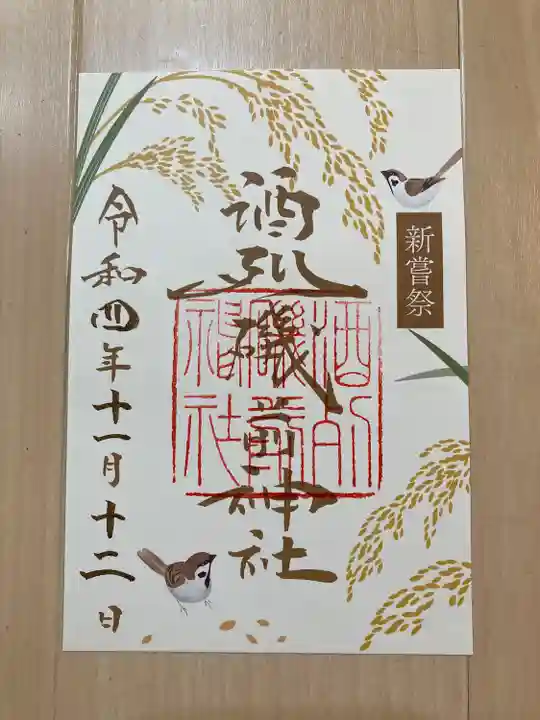 新嘗祭
酒列磯前神社
酒列
磯前
神社
令和四年十一月十二日